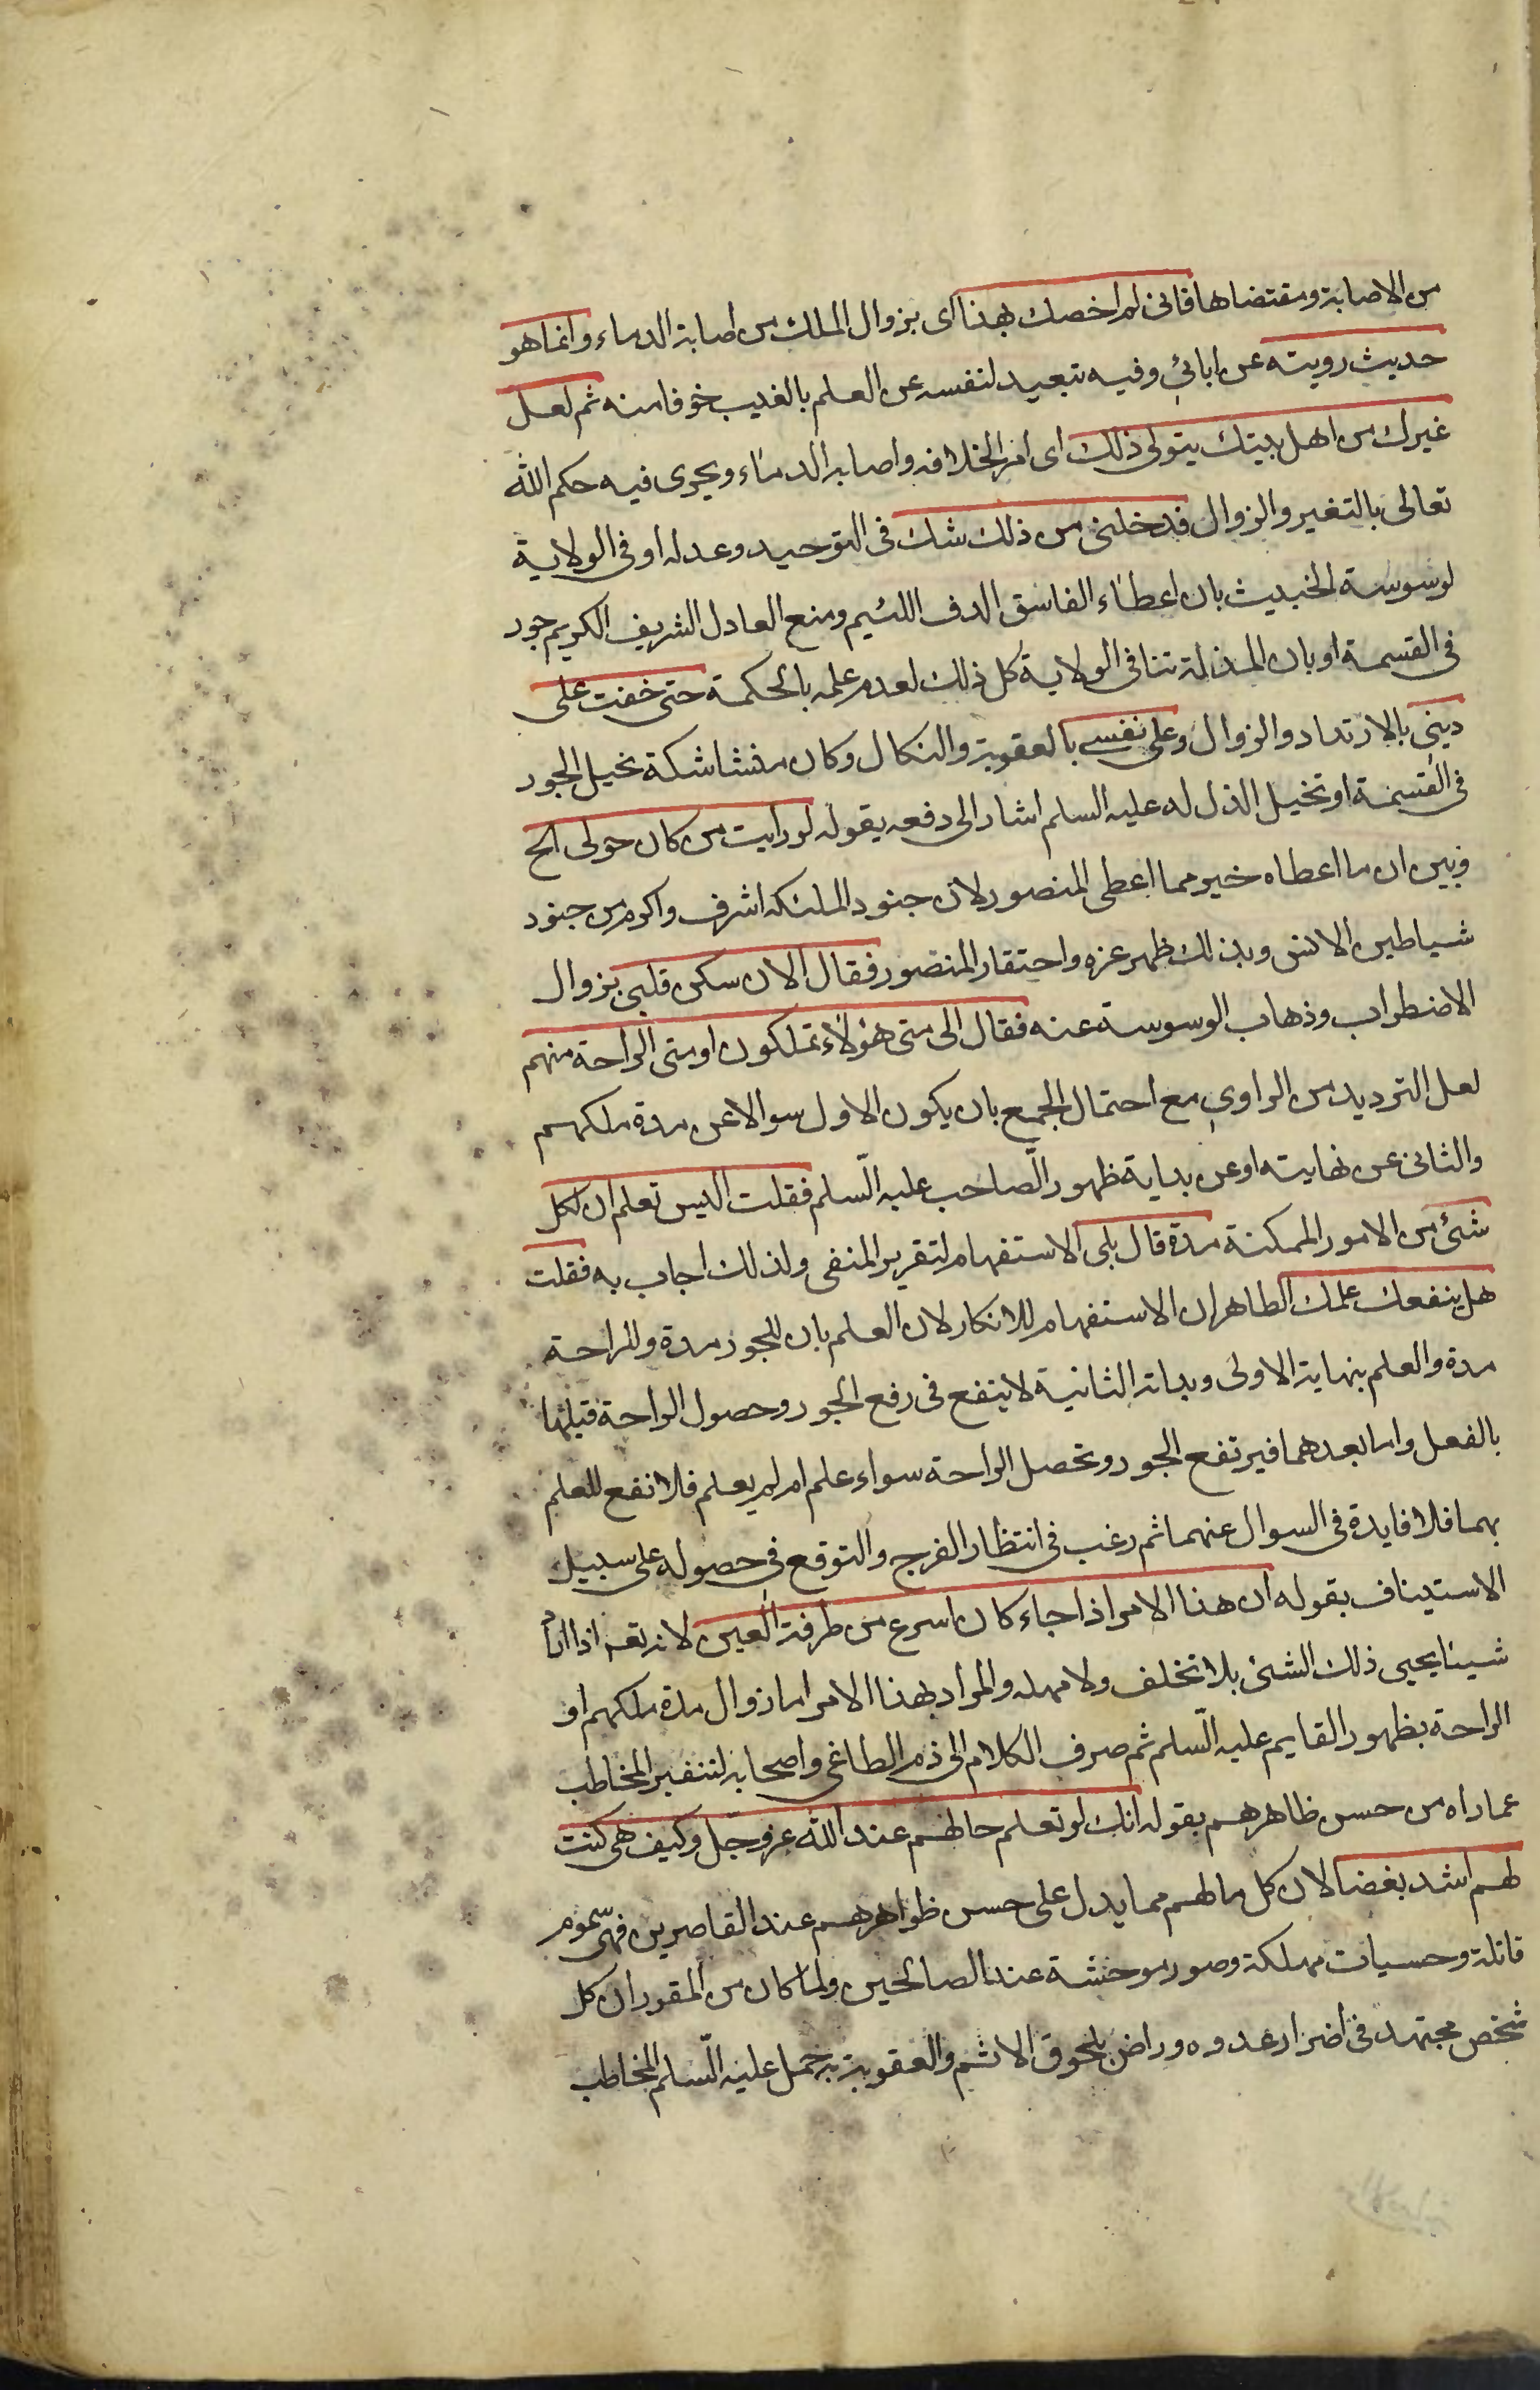 من الاصابة ومقتضاها فانى لم اخصك بهذا اى بزوال الملك من اصابة الدماء وانما هو
حديث رويته عن ابائى وفيه تبعيد لنفسه عن العلم بالغيب خوفا منه ثم لعل
غيرك من اهل بيتك يتولى ذلك اى امر الخلافه واصابه الدماء ويجرى فيه حكم الله
تعالى بالتغير والزوال فدخلنى من ذلك شك فى التوحيد وعدله او فى الولاية
لوسوسة الخبيث بان اعطاء الفاسق الدف اللئيم ومنع العادل الشريف الكريم جور
فى القسمة او بان المذلة تنافى الولاية كل ذلك لعدم علمه بالحكمة حتى خفت على
دينى بالارتداد والزوال وعلى نفسى بالعقوبة والنكال وكان منشا شكة تخيل الجور
فى القسمة او تخيل الذل له عليه السلم اشار الى دفعه بقوله لو رايت من كان حولى الخ
وبين ان ما اعطاه خير مما اعطى المنصور لان جنود الملئكه اشرف واكرم من جنود
شياطين الانس وبذلك ظهر عزه واحتقار المنصور فقال الان سكن قلبى بزوال
الاضطراب وذهاب الوسوسة عنه فقال الى متى هؤلاء تملكون او متى الراحة منهم
لعل الترديد من الراوى مع احتمال الجمع بان يكون الاول سوالا عن مدة ملكهم
والثانى عن نهايته او عن بداية ظهور الصاحب عليه السّلم فقلت اليس تعلم ان لكل
شئ من الامور الممكنة مدة قال بلى الاستفهام لتقرير المنفى ولذلك اجاب به فقلت
هل ينفعك علمك الظاهر ان الاستفهام للانكار لان العلم بان للجور مدة وللراحة
مدة والعلم بنهاية الاولى وبداية الثانية لا ينفع فى رفع الجور وحصول الراحة قبلها
بالفعل واما بعدهما فيرتفع الجور وتحصل الراحة سواء علم ام لم يعلم فلا نفع للعلم
بهما فلا فايدة فى السوال عنهما ثم رغب فى انتظار الفرج والتوقع فى حصوله على سبيل
الاستيناف بقوله ان هذا الامر اذا جاء كان اسرع من طرفة العين لانه تعه اذا اراد
شيئا يحيى ذلك الشئ بلا تخلف ولا مهله والمراد بهذا الامر اما زوال مدة ملكهم او
الراحة بظهور القايم عليه السّلم ثم صرف الكلام الى ذم الطاغى واصحابه لتنفير المخاطب
عما راه من حسن ظاهرهم بقوله انك لو تعلم حالهم عند الله عز وجل وكيف هى كنت
لهم اشد بغضا لان كل ما لهم مما يدل على حسن ظواهرهم عند القاصرين فهى سموم
قاتلة وحسيات مهلكة وصور موحشة عند الصالحين ولما كان من المقرر ان كل
شخص مجتهد فى اضرار عدوه وراض بلحوق الاثم والعقوبة به حمل عليه السّلم المخاطب